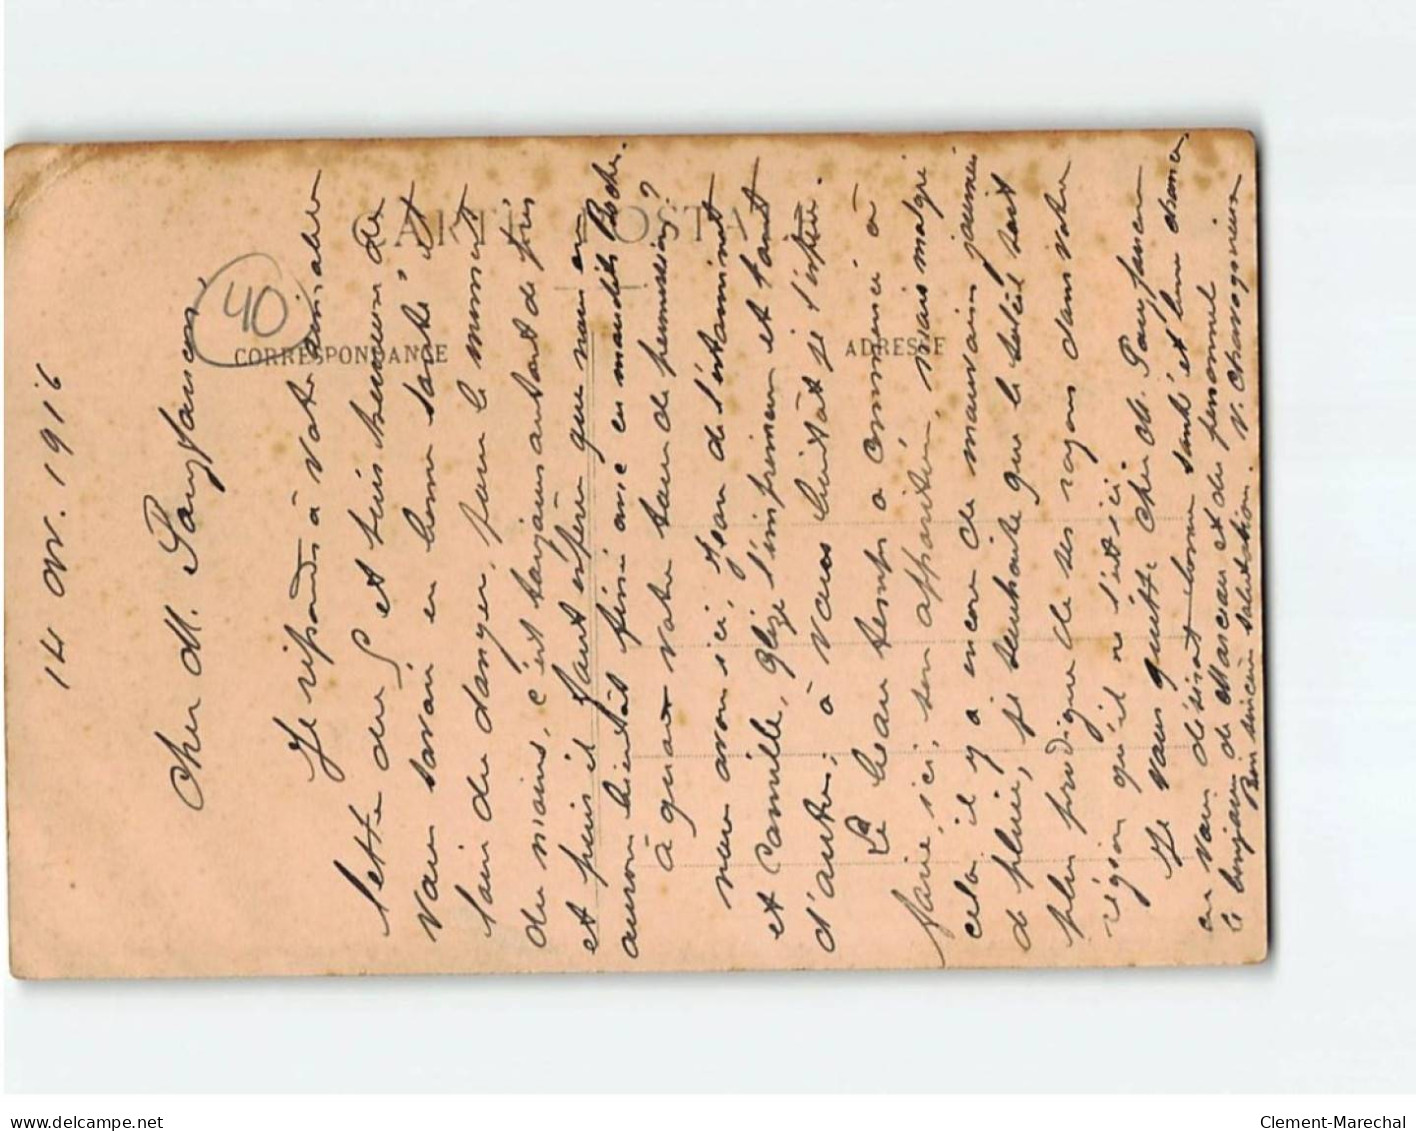 14 Av. 1916
Cher M. Payfancon
Je réponds à votre aimable
lettre du 5 et suis heureux de
vous savoir en bonne santé et
loin du danger, pour le moment
du moins, c'est toujours autant de pris
et puis il faut espérer que nous en
aurons bientôt fini avec ces maudits Boches.
à quand votre tour de permission?
nous avons ici, Jean de l'estaminet
et Camille, Glize l'imprimeur et tant
d'autres; à vous bientôt je l'espère.
Le beau temps a commencé à
faire, ici, son apparition, mais malgré
cela il y a encore de mauvaises journées
de pluie, je souhaite que le soleil soit
plus prodigue de ses rayons dans votre
région qu'il n'est ici
Je vous quitte cher M. Payfancon
en vous désirant bonne santé et bonne chance
le bonjour de Marceau et du personnel
Bien sincère salutation. V. Chassagnieux
40
CARTE POSTALE
CORRESPONDANCE
ADRESSE
www.delcampe.net
Clement-Marechal